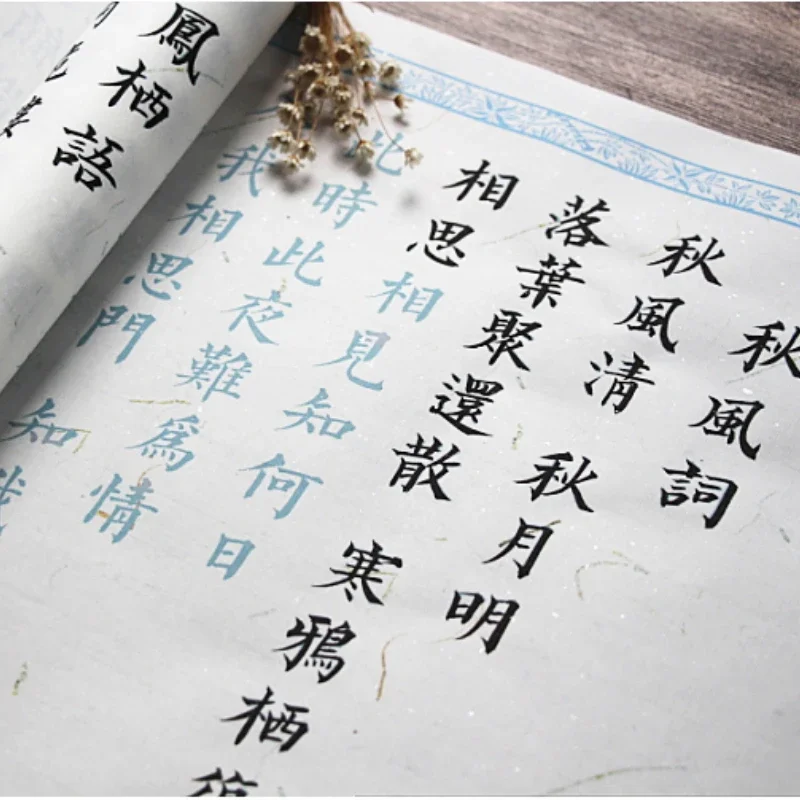 秋風詞
秋風清 秋月明
落葉聚還散 寒鴉栖
相思相見知何日
此時此夜難爲情
我相思門 知
鳳栖語